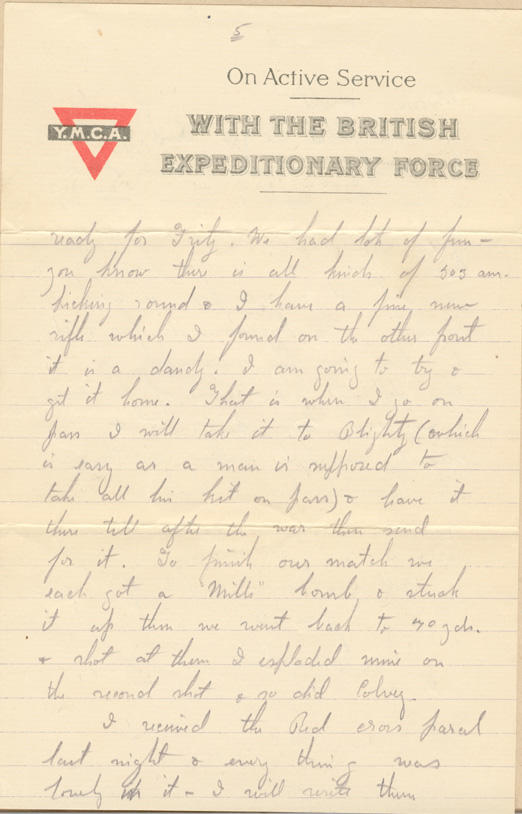 5
On Active Service
WITH THE BRITISH
EXPEDITIONARY FORCE
Y.M.C.A.
ready for Fritz. We had lots of fun -
you know there is all kinds of 303 am.
kicking round & I have a fine new
rifle which I found on the other front
it is a dandy. I am going to try &
get it home. That is when I go on
pass I will take it to Blighty (which
is easy as a man is supposed to
take all his kit on pass) & have it
there till after the war then send
for it. To finish our match we
each got a "Mills" bomb & stuck
it up then we went back to 70 yds.
& shot at them I exploded mine on
the second shot & so did
I received the Red cross parcel
last night & every thing was
lovely in it - I will write them